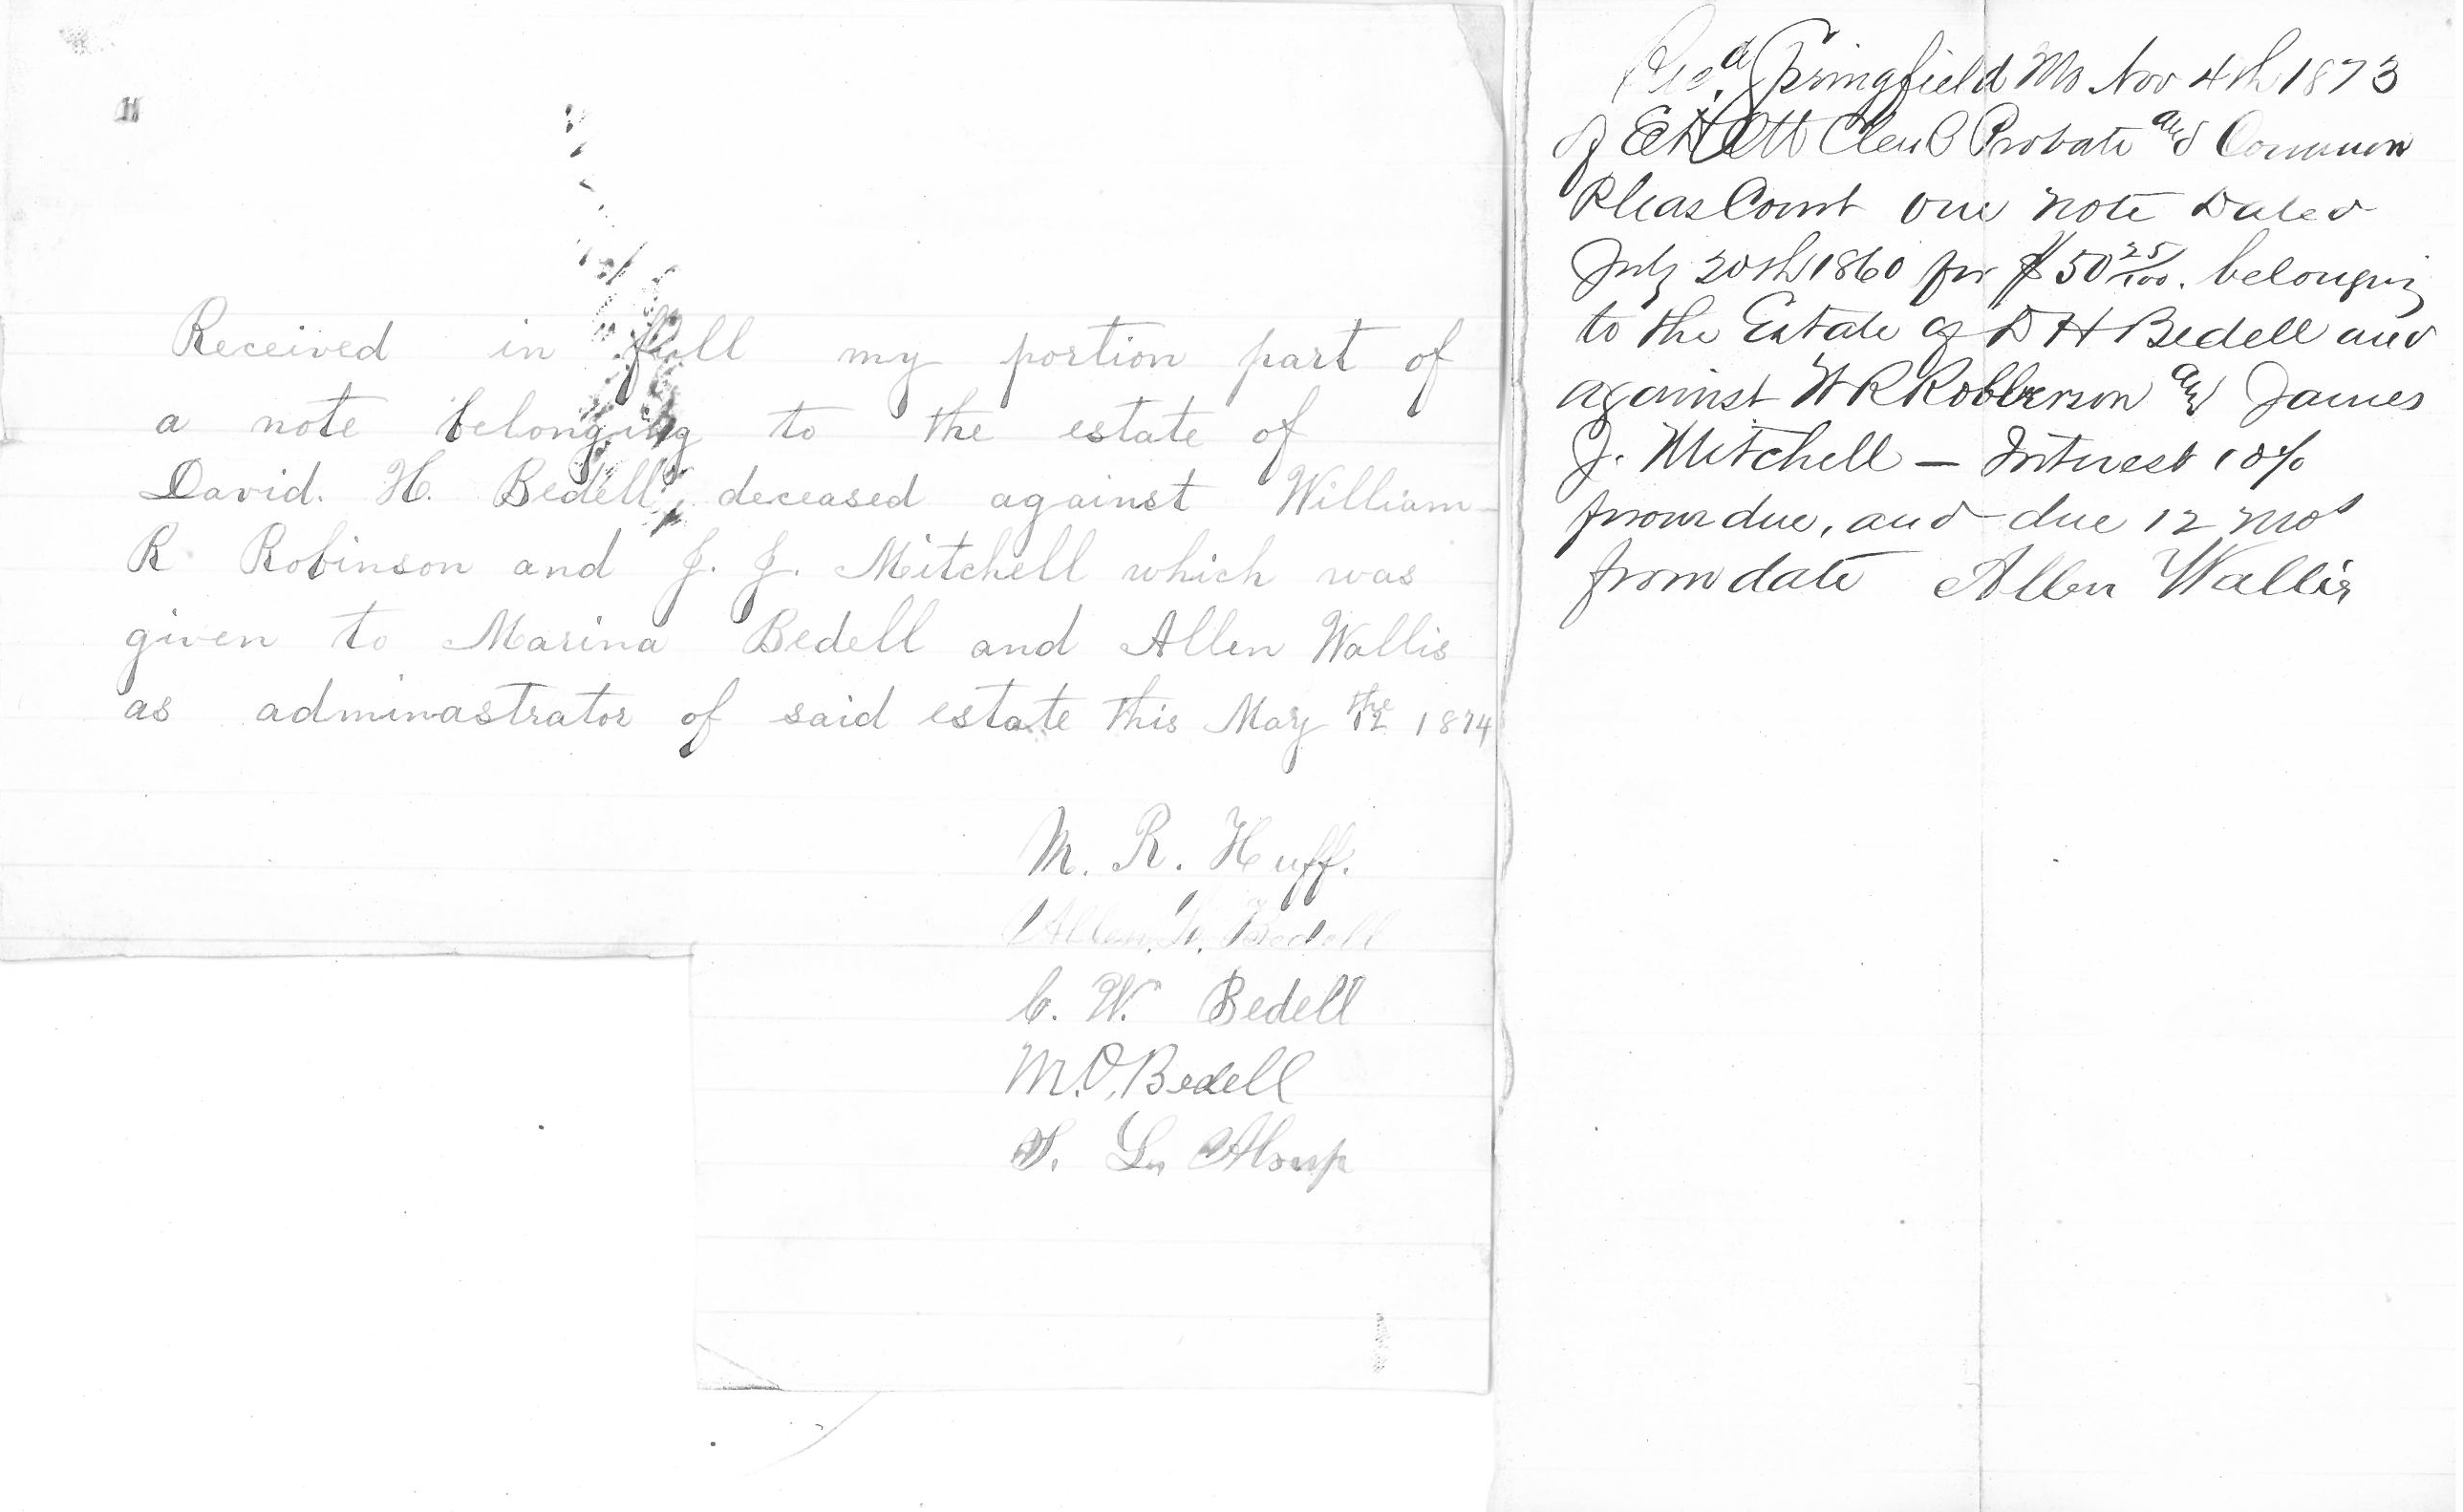 Received in full my portion part of
a note belonging to the estate of
David. H. Bedell, deceased against William
R Robinson and J. J. Mitchell which was
given to Marina Bedell and Allen Wallis
as adminastrator of said estate this May the 12 1874
M. R. Huff.
Allen. Bedell
C. W. Bedell
M. O. Bedell
L. Alsup
Rec.d Springfield Mo Nov 4th 1873
of Ott Clerk Probate and Common
Pleas Court one note Dated
July 20th 1860 for $50 25/100. belonging
to the Estate of D H Bedell and
against W R Robberson and James
J. Mitchell — Interest 10%
from due, and due 12 mos
from date Allen Wallis